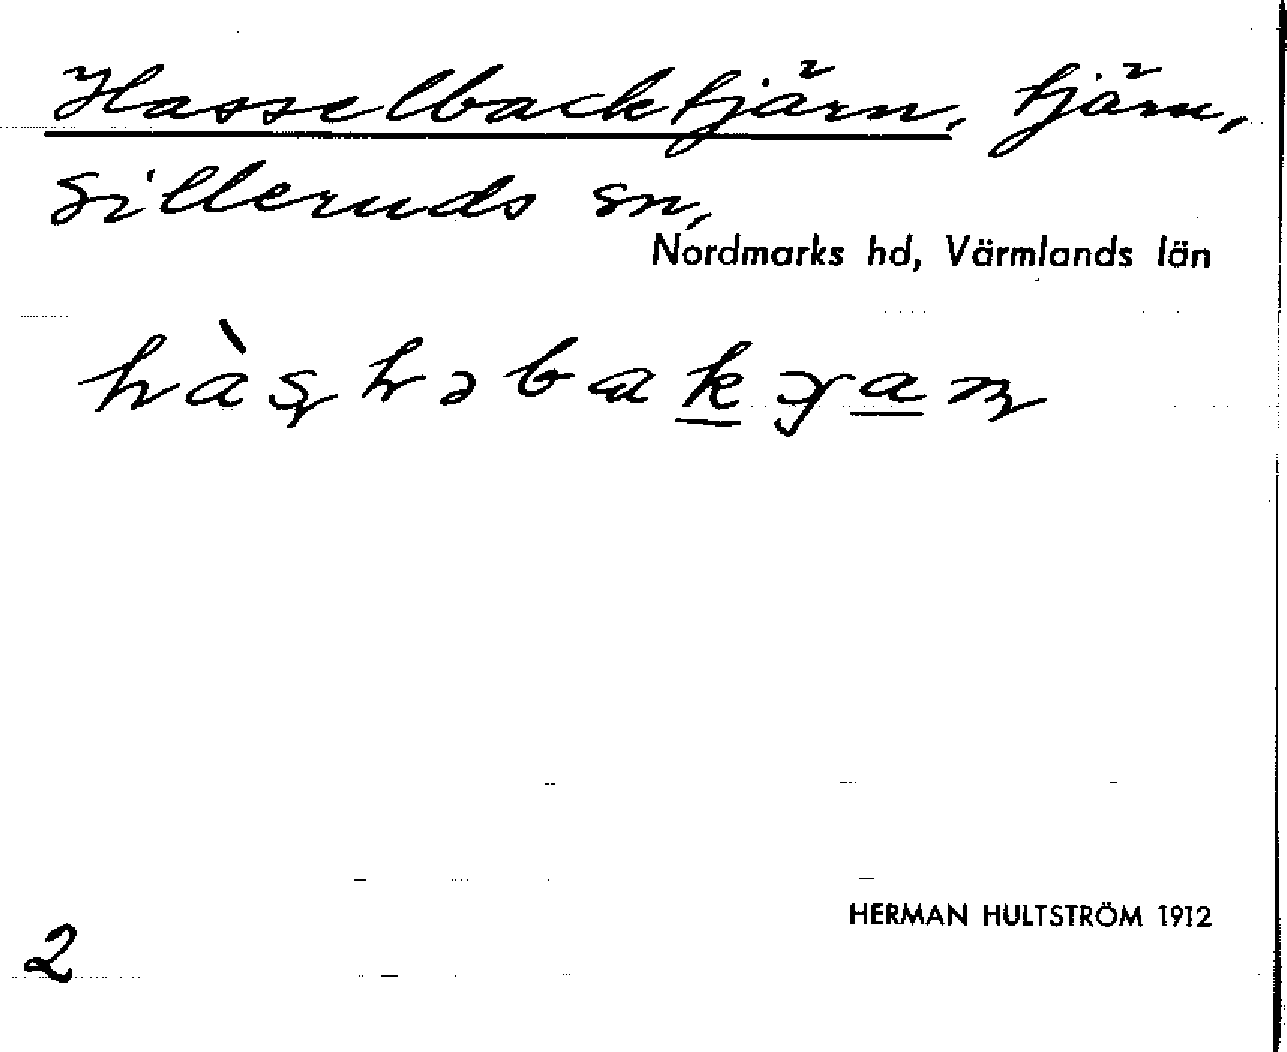 Hasselbacktjärn, tjärn,
Silleruds sn,
Nordmarks hd, Värmlands län
HERMAN HULTSTRÖM 1912
2